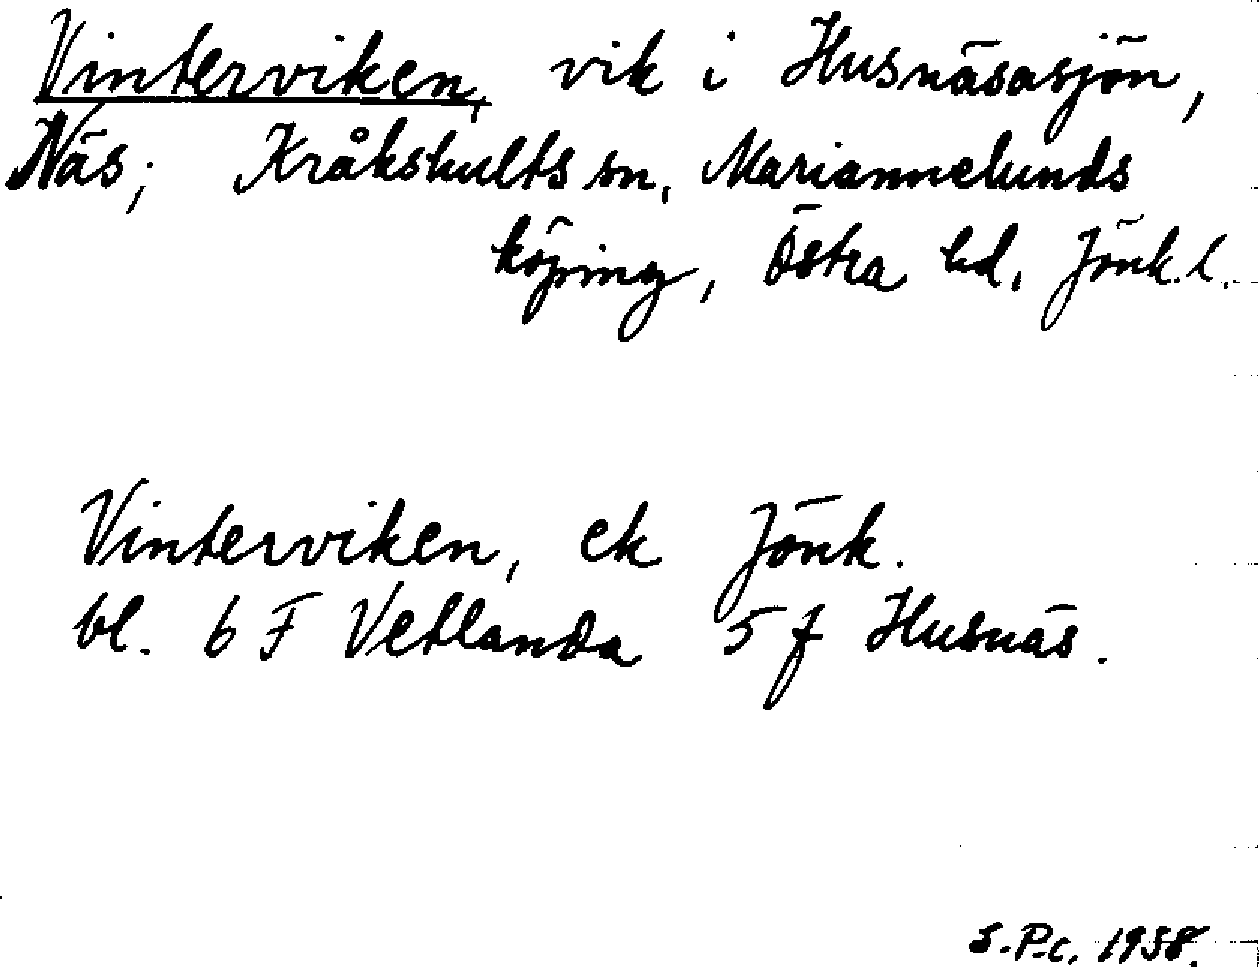 Vinterviken, vik i Husnäsasjön,
Näs; Kråkshults sn, Mariannelunds
köping, Östra hd, Jönk. l.
Vinterviken, ek Jönk.
bl. 6 F Vetlanda 5 f Husnäs.
S.P-c. 1958.